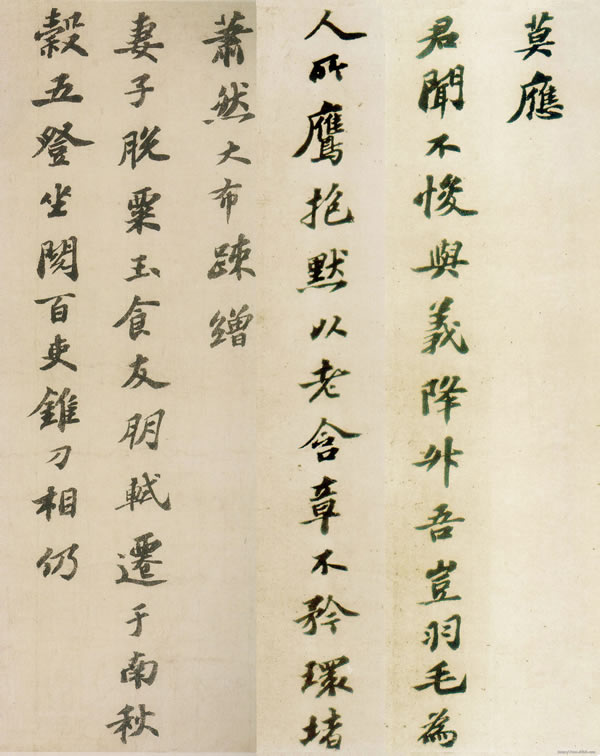 莫應
君聞不悛與義降升吾豈羽毛為
人所鷹抱默以老含章不矜環堵
蕭然大布踈繒
妻子脫粟玉食友朋軾遷于南秋
穀五登坐閱百吏錐刀相仍